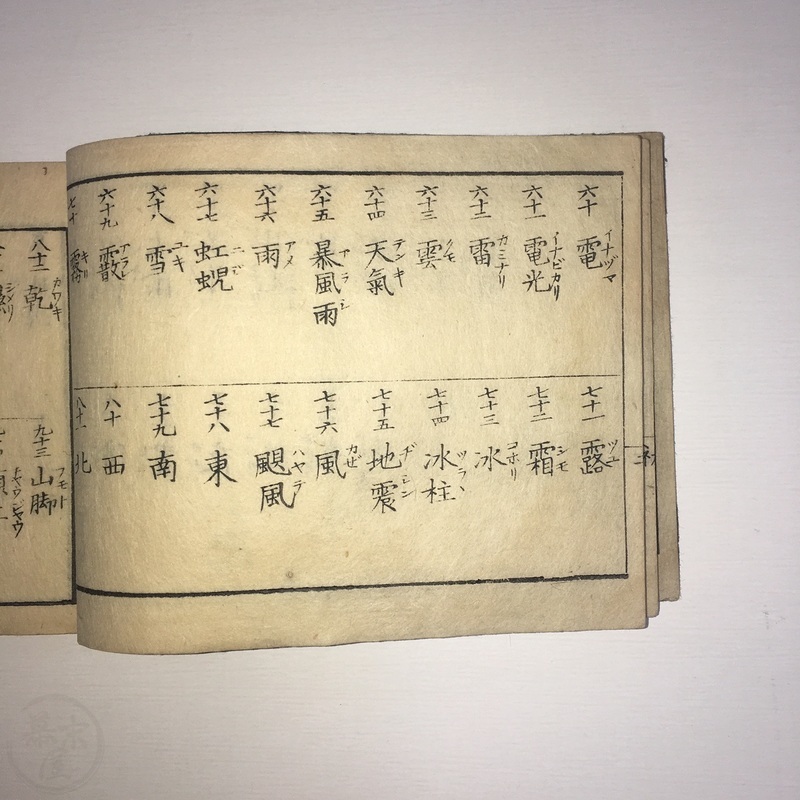 六十 電 イナヅマ
六十一 電光 イナビカリ
六十二 雷 カミナリ
六十三 雲 クモ
六十四 天氣 テンキ
六十五 暴風雨 アラシ
六十六 雨 アメ
六十七 虹蜺 ニジ
六十八 雪 ユキ
六十九 霰 アラレ
七十 霧 キリ
七十一 露 ツユ
七十二 霜 シモ
七十三 冰 コホリ
七十四 冰柱 ツラヽ
七十五 地震 ヂシン
七十六 風 カゼ
七十七 颶風 ハヤテ
七十八 東
七十九 南
八十 西
八十一 北
八十二 乾 カワキ
シメリ
九十三 山脚 フモト